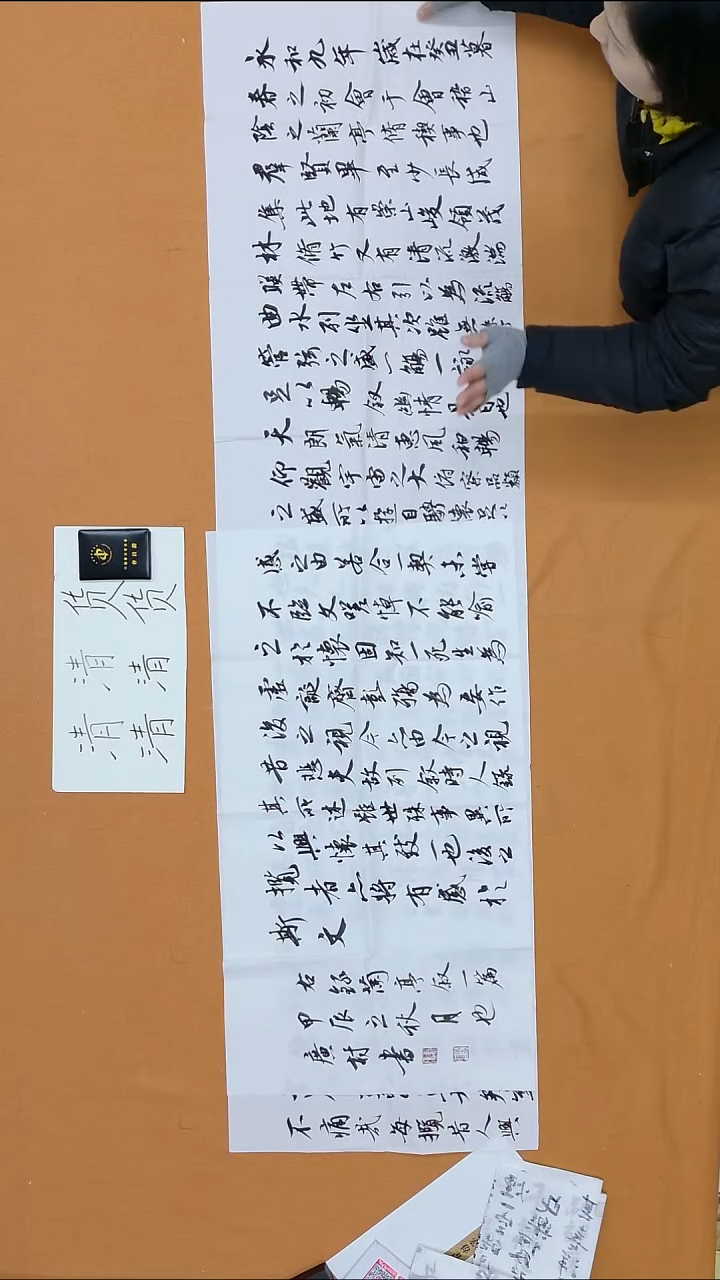 永和九年歲在癸丑暮
春之初會于會稽山
陰之蘭亭脩禊事也
羣賢畢至少長咸
集此地有崇山峻領茂
林脩竹又有清流激湍
暎帶左右引以為流觴
曲水列坐其次雖無
管弦之盛一觴一詠
足以暢敘幽情也
天朗氣清惠風和暢
仰觀宇宙之大俯察品類
之盛所以遊目騁懷足以
感之由若合一契未嘗
不臨文嗟悼不能喻
之於懷固知一死生為
虛誕齊彭殤為妄作
後之視今亦由今之視
昔悲夫故列敘時人錄
其所述雖世殊事異所
以興懷其致一也後之
攬者亦將有感於
斯文
右錄蘭亭敘一篇
甲辰之秋月也
廣村書
不痛哉每攬昔人興
货货
清清
清清